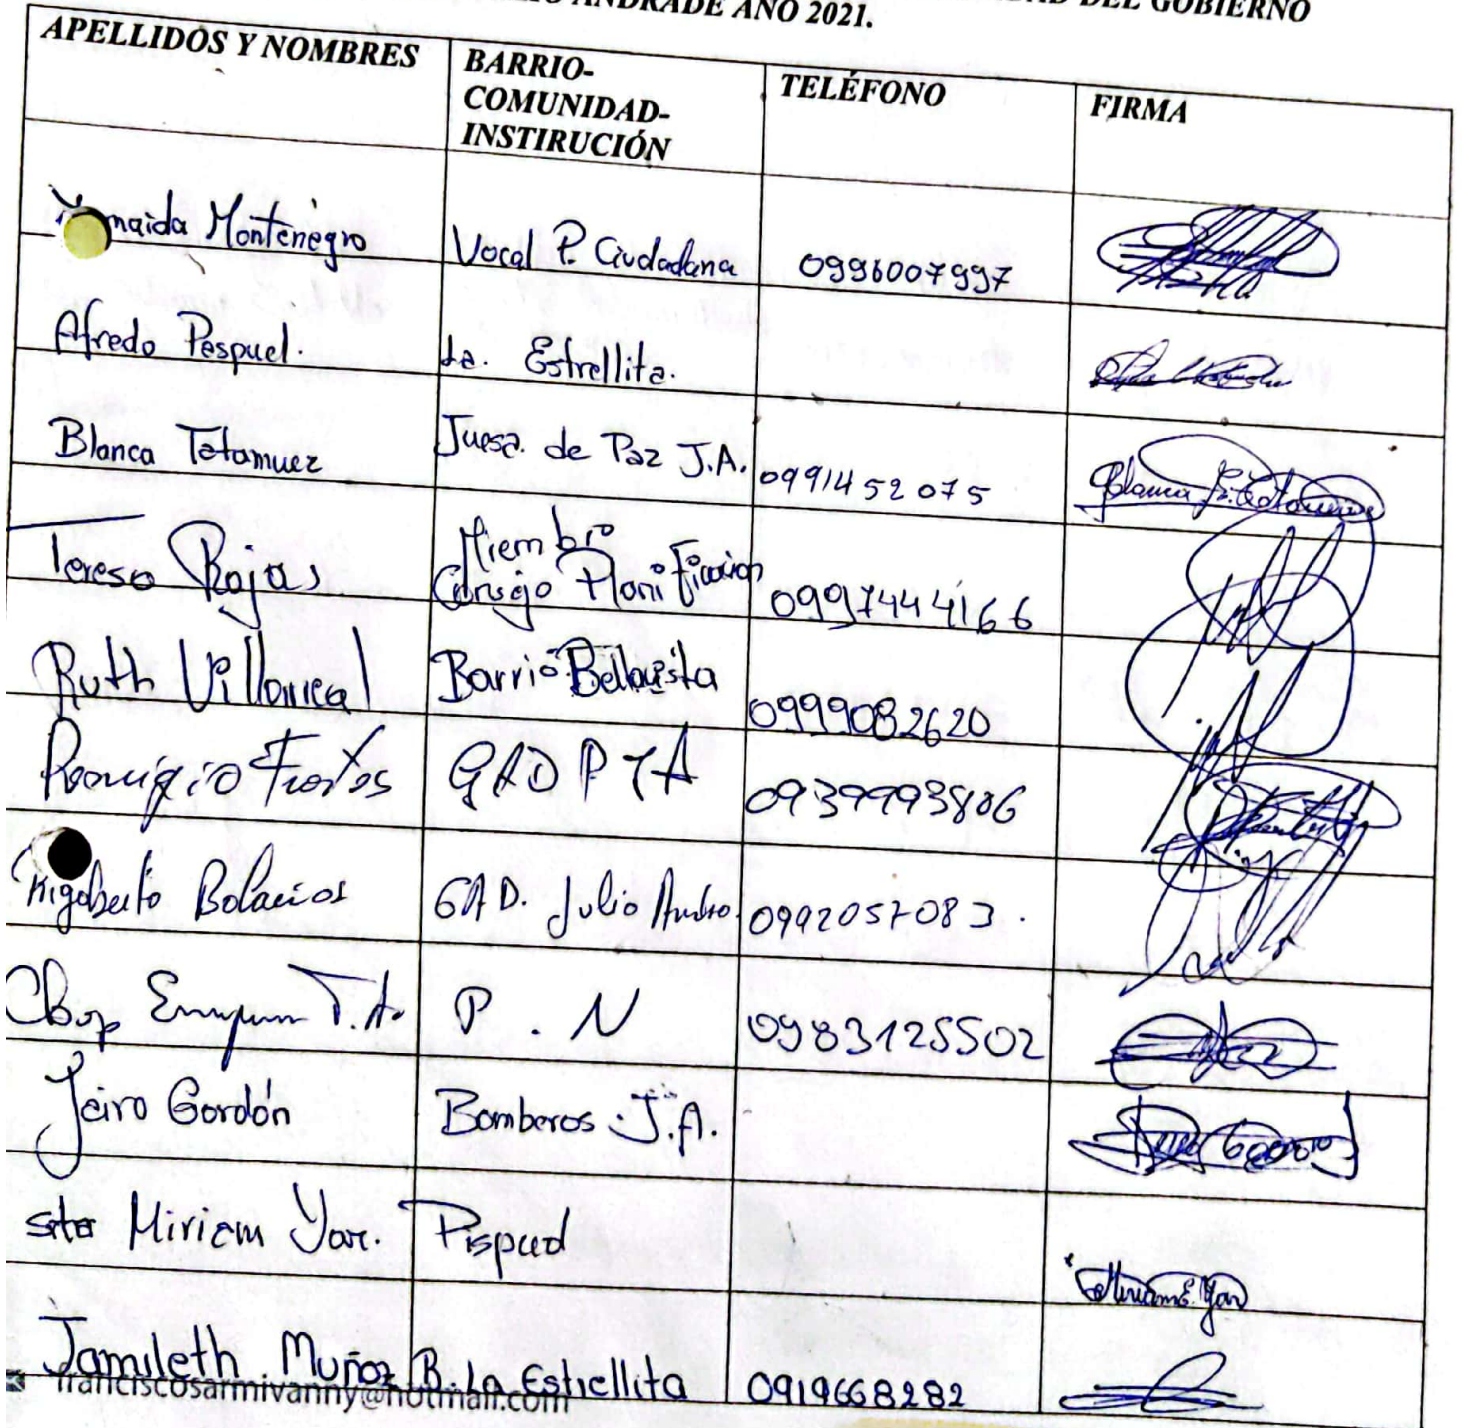 DEL GOBIERNO
ANDRADE AÑO 2021.
APELLIDOS Y NOMBRES BARRIO- TELÉFONO FIRMA
COMUNIDAD-
INSTIRUCIÓN
Montenegro Vocal P. Ciudadana 0996007997
Afredo Pespuel. La. Estrellita.
Blanca Tatamuez Juesa. de Paz J.A. 0991452075
Miembro
Tereso Rojas Consejo Planificacion 0997444166
Ruth Villarreal Barrio Bellavista 0999082620
Remigio Fuertes GADPJA 0939993806
Rigoberto Bolaños GAD. Julio Andra. 0992057083.
Cbop T.A. P.N 0983125502
Jairo Gordón Bomberos J.A.
Miriam Yar. Pispud
Jamileth Muñoz B. La Estrellita 0919668282
franciscosarmivanny@hotmail.com